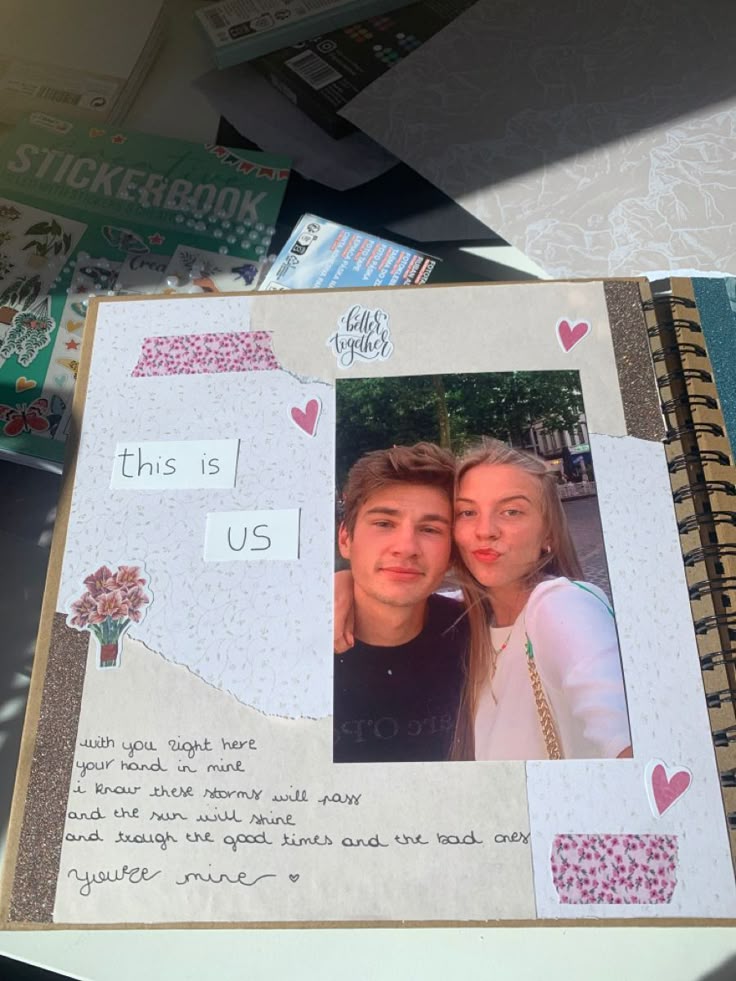 STICKERBOOK
better
together
this is
US
with you right here
your hand in mine
i know these storms will pass
and the sun will shine
and trough the good times and the bad ones
you're mine